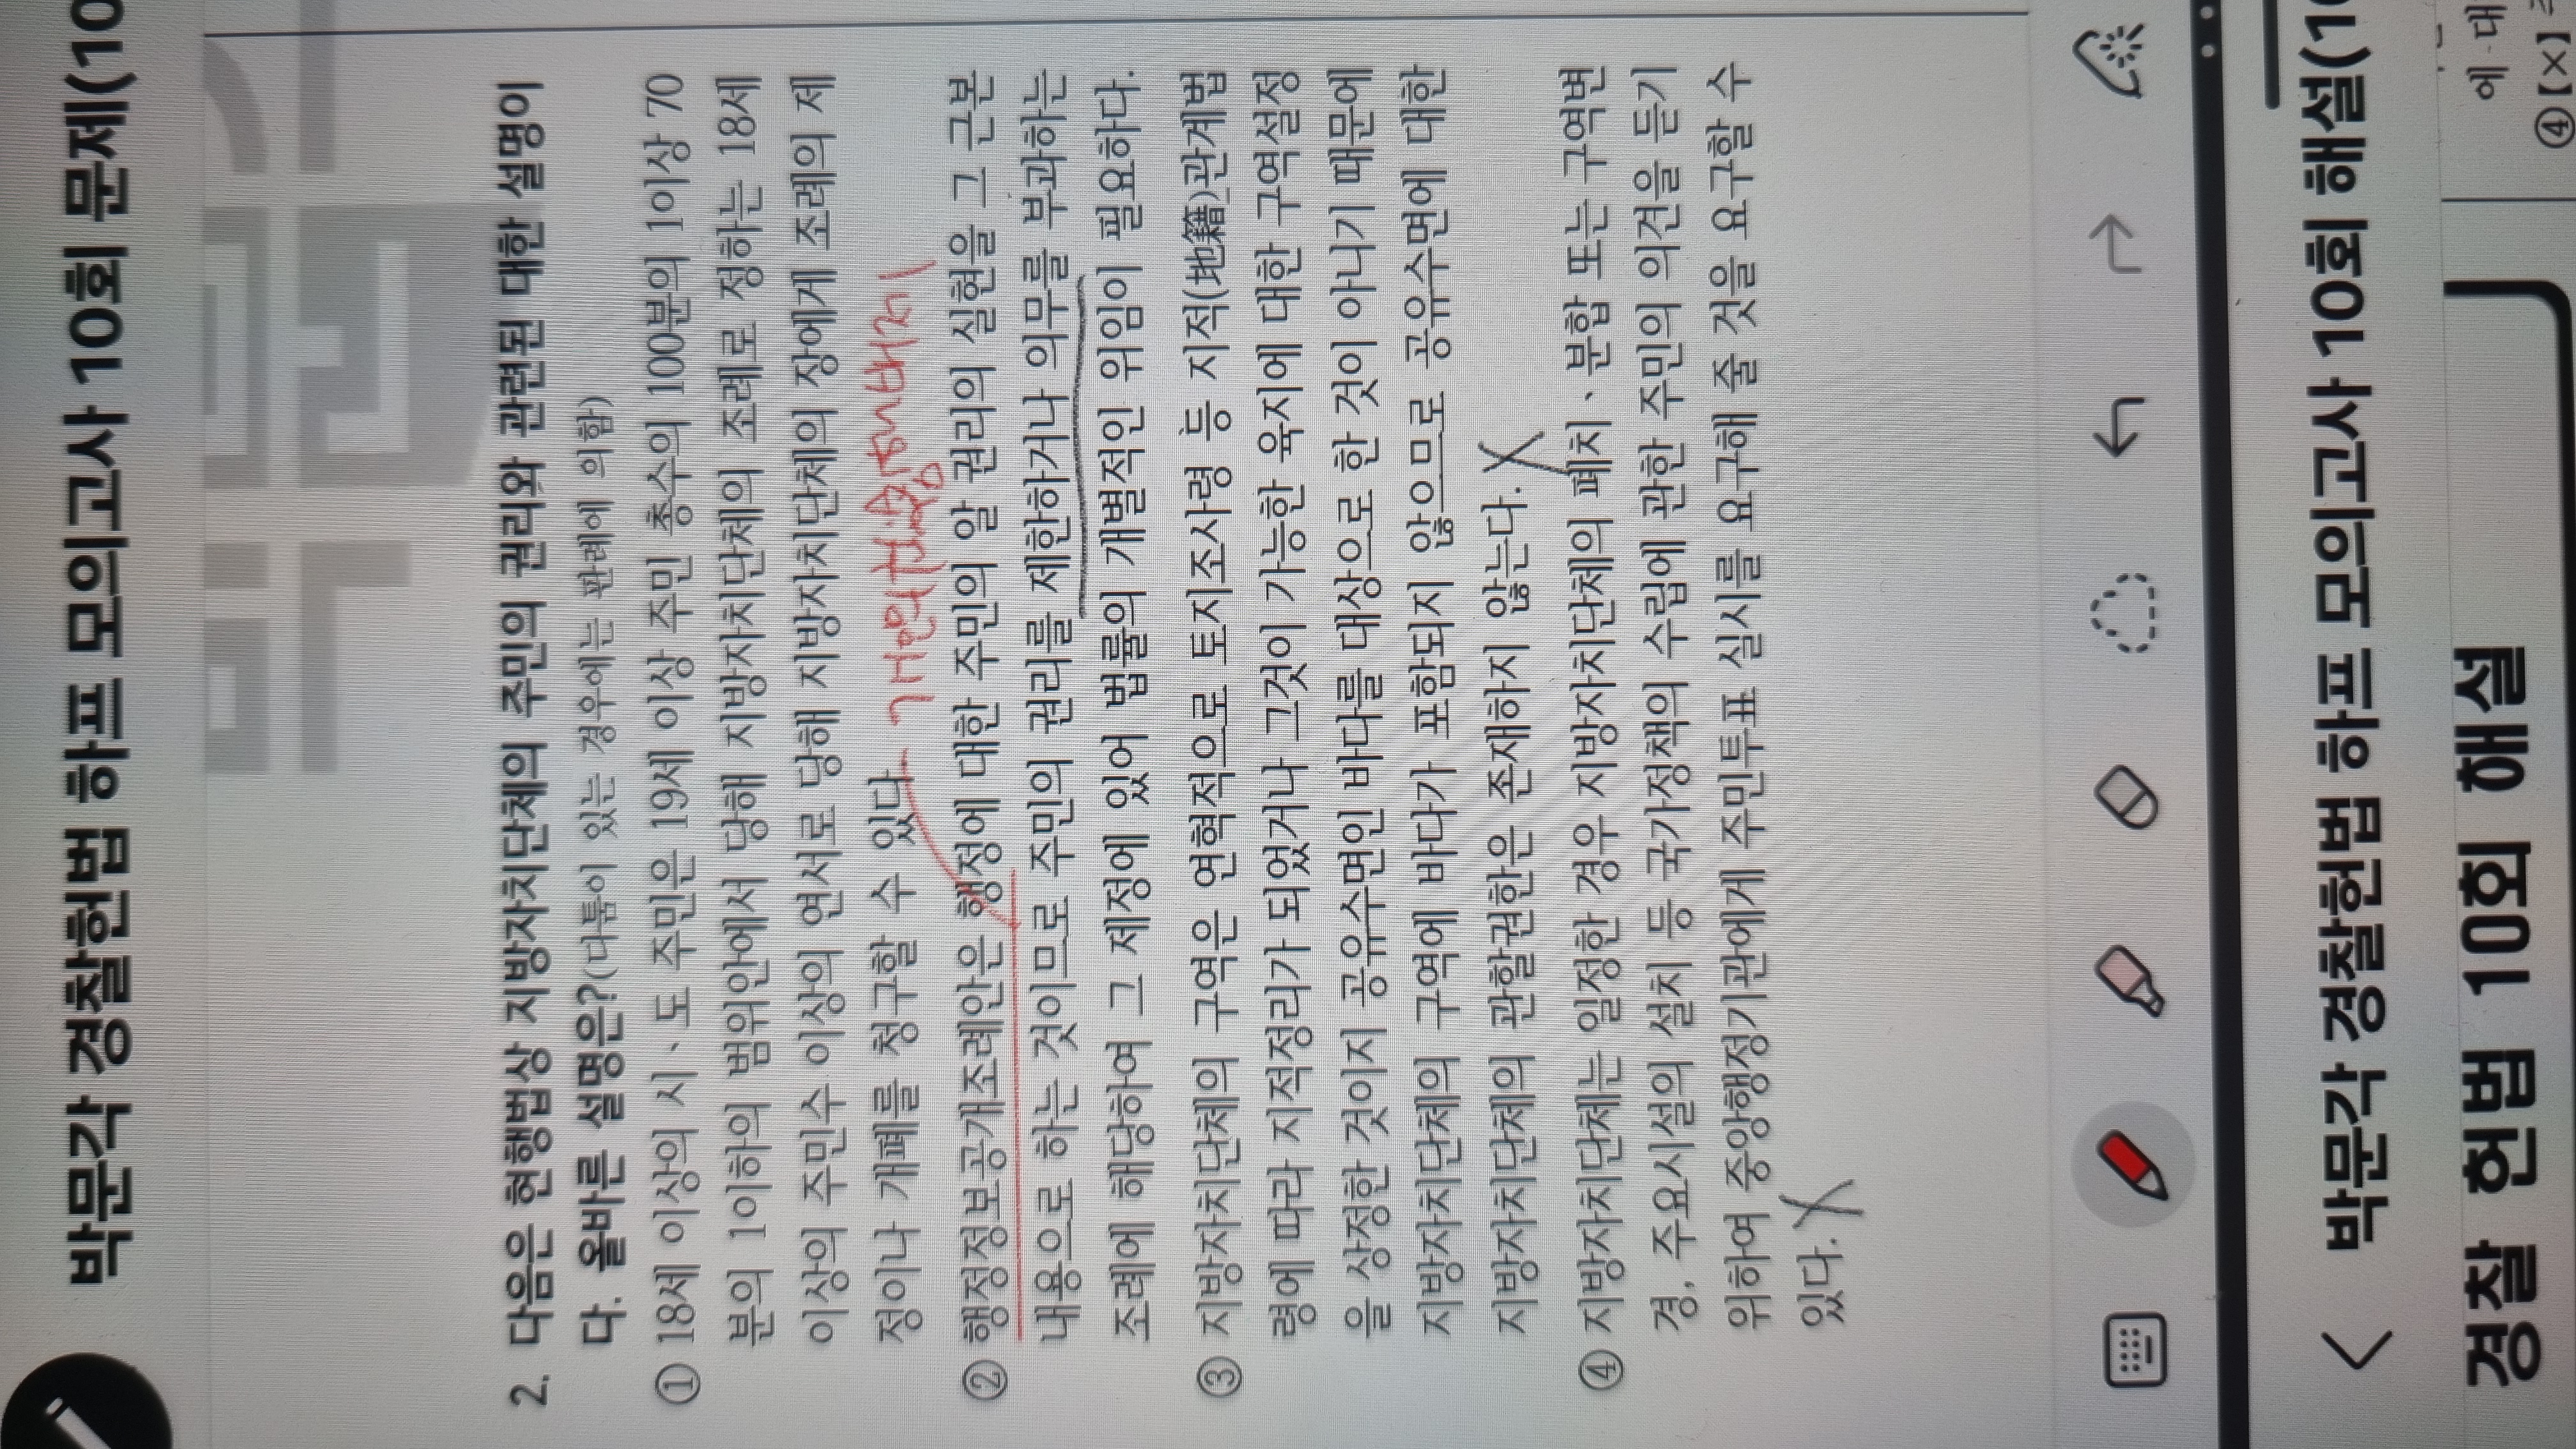 박문각 경찰헌법 하프 모의고사 10회 문제(10
2. 다음은 현행법상 지방자치단체의 주민의 권리와 관련된 대한 설명이
다. 올바른 설명은?(다툼이 있는 경우에는 판례에 의함)
① 18세 이상의 시、도 주민은 19세 이상 주민 총수의 100분의 1이상 70
분의 1이하의 범위안에서 당해 지방자치단체의 조례로 정하는 18세
이상의 주민수 이상의 연서로 당해 지방자치단체의 장에게 조례의 제
정이나 개폐를 청구할 수 있다
② 행정정보공개조례안은 행정에 대한 주민의 알 권리의 실현을 그 근본
내용으로 하는 것이므로 주민의 권리를 제한하거나 의무를 부과하는
조례에 해당하여 그 제정에 있어 법률의 개별적인 위임이 필요하다.
③ 지방자치단체의 구역은 연혁적으로 토지조사령 등 지적(地籍)관계법
령에 따라 지적정리가 되었거나 그것이 가능한 육지에 대한 구역설정
을 상정한 것이지 공유수면인 바다를 대상으로 한 것이 아니기 때문에
지방자치단체의 구역에 바다가 포함되지 않으므로 공유수면에 대한
지방자치단체의 관할권한은 존재하지 않는다.
④ 지방자치단체는 일정한 경우 지방자치단체의 폐치、분합 또는 구역변
경, 주요시설의 설치 등 국가정책의 수립에 관한 주민의 의견을 듣기
위하여 중앙행정기관에게 주민투표 실시를 요구해 줄 것을 요구할 수
있다.
박문각 경찰헌법 하프 모의고사 10회 해설(10
경찰 헌법 10회 해설
에 대
④【×】